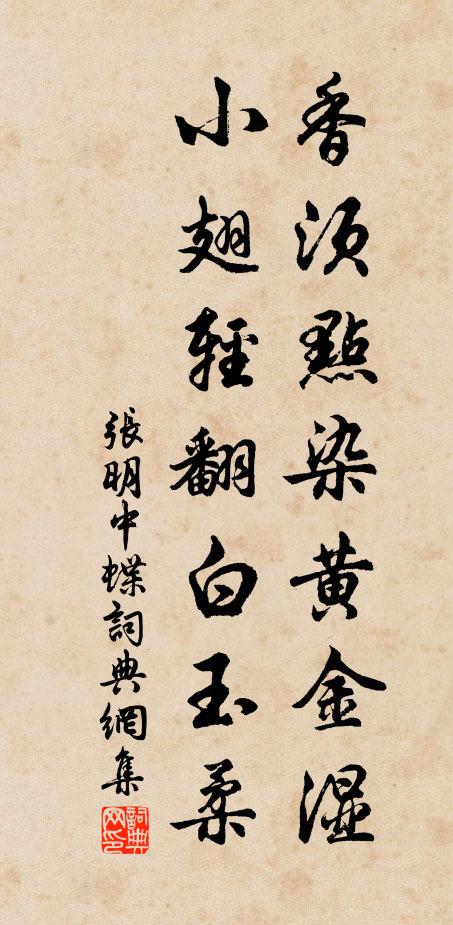 香須點染黄金濕
小翅輕翻白玉柔
張明中蝶詞典網集
詞典网印